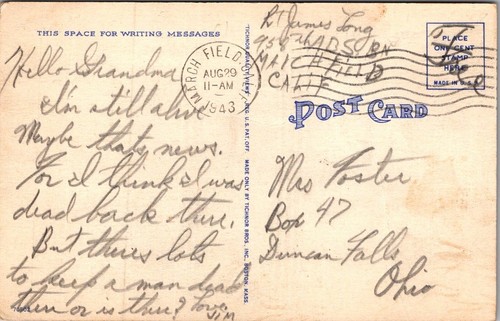 THIS SPACE FOR WRITING MESSAGES
Hello Grandma
I'm still alive
Maybe that's news.
For I think I was
dead back there.
But theres lots
to keep a man dead
then or is there? Love
JIM
MARCH FIELD, CALIF.
AUG 29
11-AM
1943
MADE ONLY BY TICHNOR BROS., INC., BOSTON, MASS.
Lt James Long
MARCH FIELD
CALIF
Free
PLACE
ONE CENT
STAMP
HERE
MADE IN U.S.A.
POST CARD
Mrs Foster
Box 47
Duncan Falls
Ohio